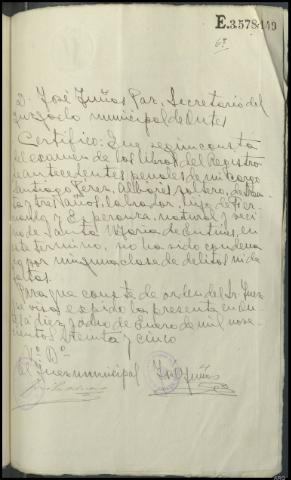 E.3578.149
6º
D. José Tuñas Paz, Secretario del
Juzgado municipal de Outes
Certifico: Que segun consta
del examen de los libros del Registro
de antecedentes penales de mi cargo
Santiago Perez Albores, soltero, de
y tres años, labrador, hijo de
y Esperanza, natural y veci
no de Santa Maria de Entines, en
este termino, no ha sido condena
do por ninguna clase de delitos ni de
faltas.
Para que conste de orden del Sr. Juez
y visado expido la presente en Ou
tes a diez y ocho de Enero de mil nove
cientos treinta y cinco
Vº Bº
El Juez municipal José Tuñas